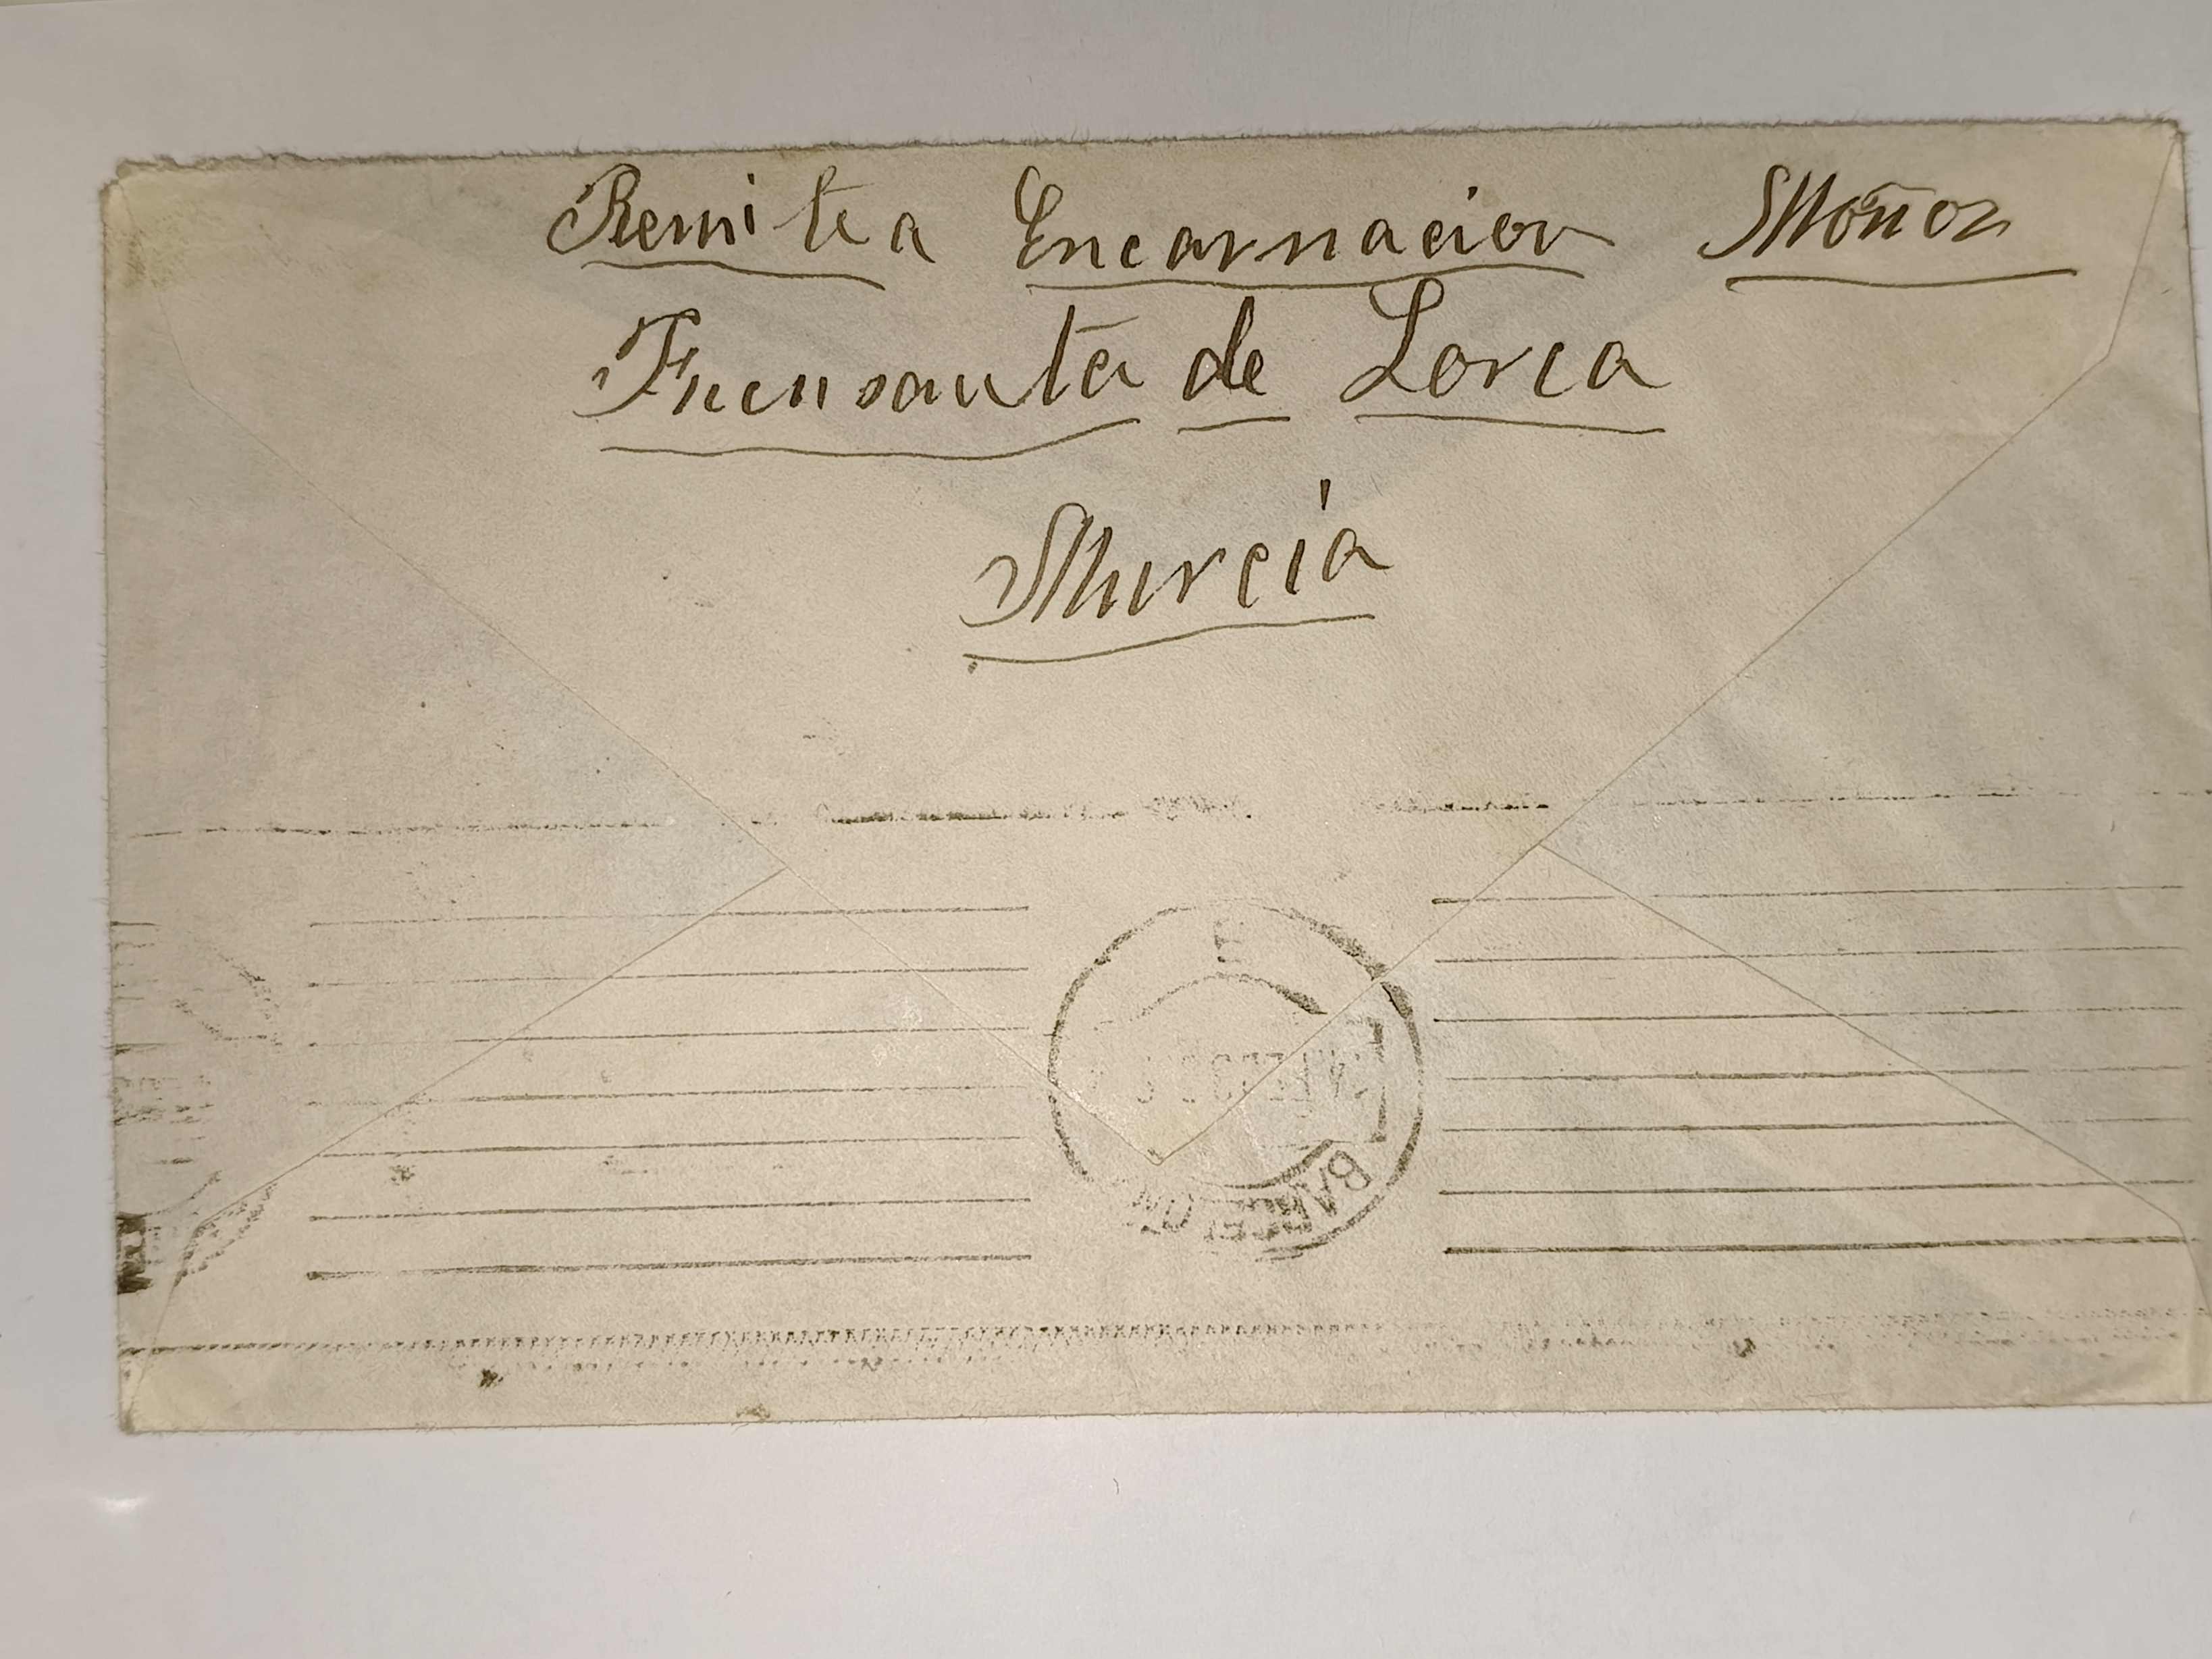 Remitea Encarnacion Moñoz
Fuensanta de Lorca
Murcia
BARCELON